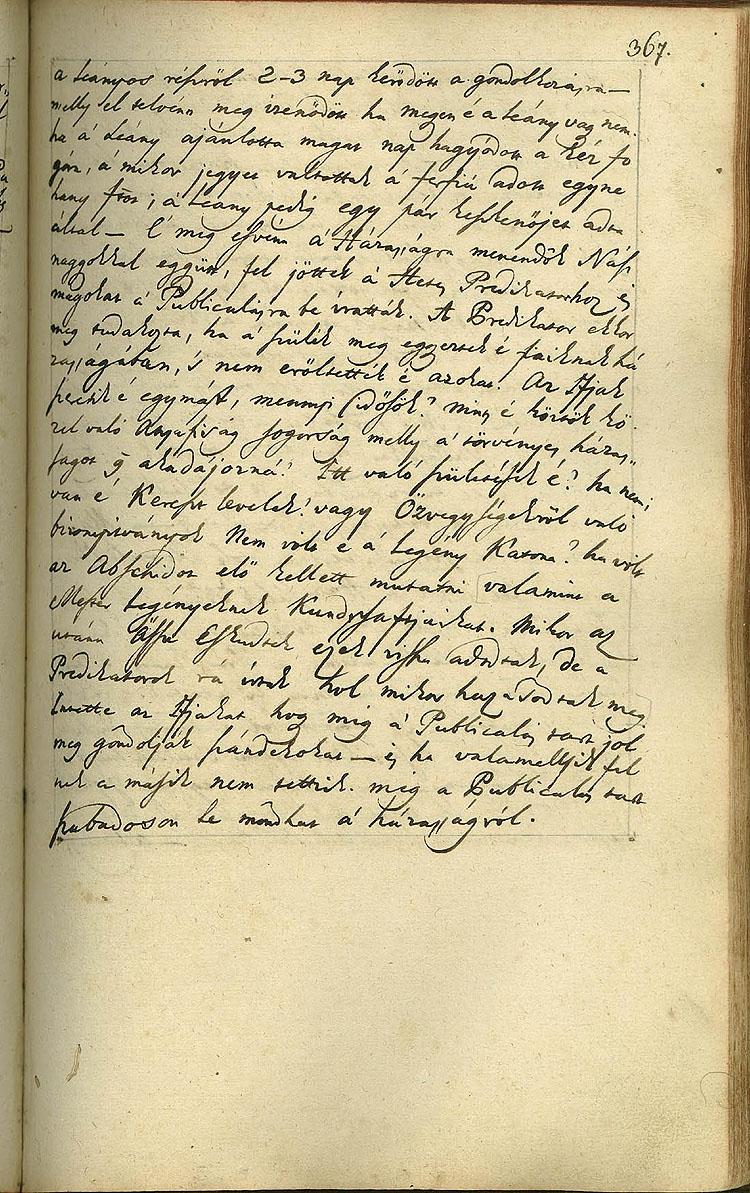 367.
a leányos részröl 2-3 nap kérődött a gondolkozásra—
melly el telvénn meg izenődött ha megen é a leány vag nem.
ha á Leány ajánlotta magat nap hagyodott a kéz fo
góra, á mikor jegyet valtottak á ferfiú adott egyne
hany ftot; á leany pedig egy pár keszkenőjet adta
által — E' meg esvénn á Házasságra menendők Násf
naggokkal eggütt, fel jöttek á Hetes Predikatorhoz és
magokat á Publicatiora be iratták. A Predikator ekkor
meg tudakozta, ha á szülék meg eggyeztek é fiaiknak há
zasságában, 's nem erőltették é azokat. Az Ifjak
szeretik é egymást, mennyi idősök? nincs é köztök kö
zel való Atyafiság sogorság melly á törvényes házas
ságot akadájozná? Itt való születésük é? ha nem,
van é Kereszt levelek? vagy Özvegységekröl való
bizonyitványok Nem volt e á Legény Katona? ha volt
az Abschidot elő kellett mutatni valamint a
Mester Legényeknek Kundschaftjaikat. Mikor az
utánn Össze Esküdtek ezek viszsza adodtak, de a
Predikatorok rá irtak hol mikor hazasodtak meg
Intette az Ifjakat hog mig á Publicatio tart jol
meg gondolják szándekokat — és ha valamellyik fel
nek a másik nem tettzik. mig a Publicatio tart
szabadoson le mondhat á házasságról.